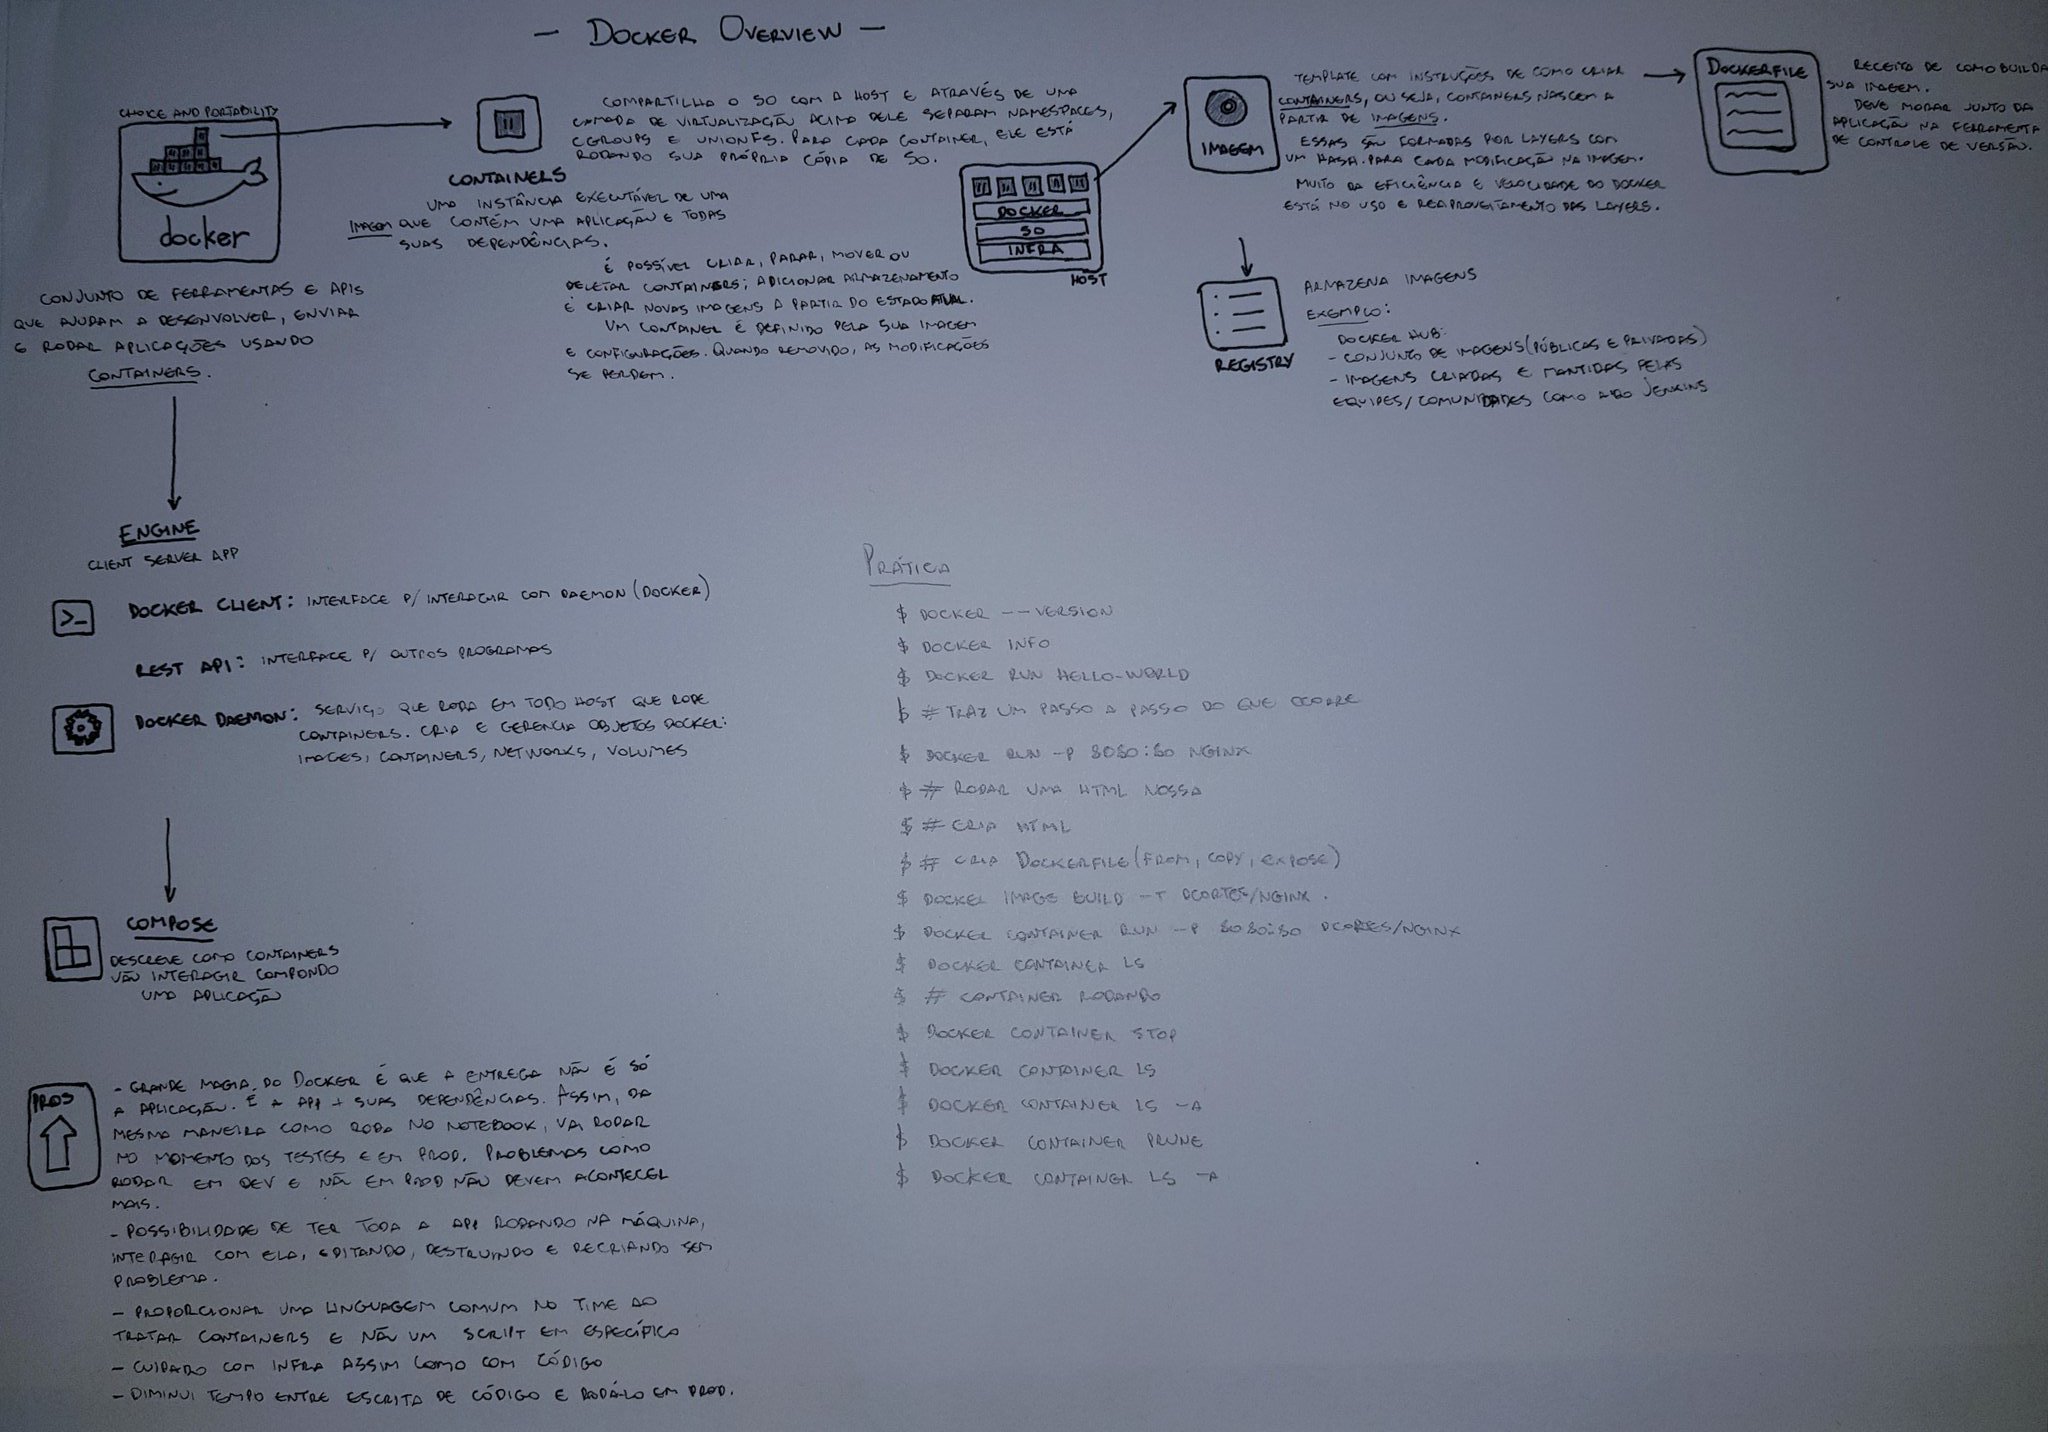 - DOCKER OVERVIEW -
CHOICE AND PORTABILITY
docker
CONJUNTO DE FERRAMENTAS E APIS
QUE AJUDAM A DESENVOLVER, ENVIAR
E RODAR APLICAÇÕES USANDO
CONTAINERS.
CONTAINERS
COMPARTILHA O SO COM A HOST E ATRAVÉS DE UMA
CAMADA DE VIRTUALIZAÇÃO ACIMA DELE SEPARAM NAMESPACES,
CGROUPS E UNIONFS. PARA CADA CONTAINER, ELE ESTÁ
RODANDO SUA PRÓPRIA CÓPIA DE SO.
UMA INSTÂNCIA EXECUTÁVEL DE UMA
IMAGEM QUE CONTÉM UMA APLICAÇÃO E TODAS
SUAS DEPENDÊNCIAS.
É POSSÍVEL CRIAR, PARAR, MOVER OU
DELETAR CONTAINERS; ADICIONAR ARMAZENAMENTO
É CRIAR NOVAS IMAGENS A PARTIR DO ESTADO ATUAL.
UM CONTAINER É DEFINIDO PELA SUA IMAGEM
E CONFIGURAÇÕES. QUANDO REMOVIDO, AS MODIFICAÇÕES
SE PERDEM.
DOCKER
SO
INFRA
HOST
IMAGEM
TEMPLATE COM INSTRUÇÕES DE COMO CRIAR
CONTAINERS, OU SEJA, CONTAINERS NASCEM A
PARTIR DE IMAGENS.
ESSAS SÃO FORMADAS POR LAYERS COM
UM HASH PARA CADA MODIFICAÇÃO NA IMAGEM.
MUITO DA EFICIÊNCIA E VELOCIDADE DO DOCKER
ESTÁ NO USO E REAPROVEITAMENTO DAS LAYERS.
DOCKERFILE
RECEITA DE COMO BUILDA
SUA IMAGEM.
DEVE MORAR JUNTO DA
APLICAÇÃO NA FERRAMENTA
DE CONTROLE DE VERSÃO.
REGISTRY
ARMAZENA IMAGENS
EXEMPLO:
DOCKER HUB:
- CONJUNTO DE IMAGENS (PÚBLICAS E PRIVADAS)
- IMAGENS CRIADAS E MANTIDAS PELAS
EQUIPES/COMUNIDADES COMO JENKINS
ENGINE
CLIENT SERVER APP
>_
DOCKER CLIENT: INTERFACE P/ INTERAGIR COM DAEMON (DOCKER)
REST API: INTERFACE P/ OUTROS PROGRAMAS
DOCKER DAEMON: SERVIÇO QUE RODA EM TODO HOST QUE RODE
CONTAINERS. CRIA E GERENCIA OBJETOS DOCKER:
IMAGES, CONTAINERS, NETWORKS, VOLUMES
COMPOSE
DESCREVE COMO CONTAINERS
VÃO INTERAGIR COMPONDO
UMA APLICAÇÃO
PROS
- GRANDE MAGIA DO DOCKER É QUE A ENTREGA NÃO É SÓ
A APLICAÇÃO. É A APP + SUAS DEPENDÊNCIAS. ASSIM, DA
MESMA MANEIRA COMO RODA NO NOTEBOOK, VAI RODAR
NO MOMENTO DOS TESTES E EM PROD. PROBLEMAS COMO
RODAR EM DEV E NÃO EM PROD NÃO DEVEM ACONTECER
MAIS.
- POSSIBILIDADE DE TER TODA A APP RODANDO NA MÁQUINA,
INTERAGIR COM ELA, EDITANDO, DESTRUINDO E RECRIANDO SEM
PROBLEMA.
- PROPORCIONAR UMA LINGUAGEM COMUM NO TIME AO
TRATAR CONTAINERS E NÃO UM SCRIPT EM ESPECÍFICO
- CUIDADO COM INFRA ASSIM COMO COM CÓDIGO
- DIMINUI TEMPO ENTRE ESCRITA DE CÓDIGO E RODÁ-LO EM PROD.
PRÁTICA
$ DOCKER --VERSION
$ DOCKER INFO
$ DOCKER RUN HELLO-WORLD
$ # TRAZ UM PASSO A PASSO DO QUE OCORRE
$ DOCKER RUN -P 8080:80 NGINX
$ # RODAR UMA HTML NOSSA
$ # CRIA HTML
$ # CRIA DOCKERFILE (FROM, COPY, EXPOSE)
$ DOCKER IMAGE BUILD -T DCORTES/NGINX .
$ DOCKER CONTAINER RUN -P 8080:80 DCORTES/NGINX
$ DOCKER CONTAINER LS
$ # CONTAINER RODANDO
$ DOCKER CONTAINER STOP
$ DOCKER CONTAINER LS
$ DOCKER CONTAINER LS -A
$ DOCKER CONTAINER PRUNE
$ DOCKER CONTAINER LS -A